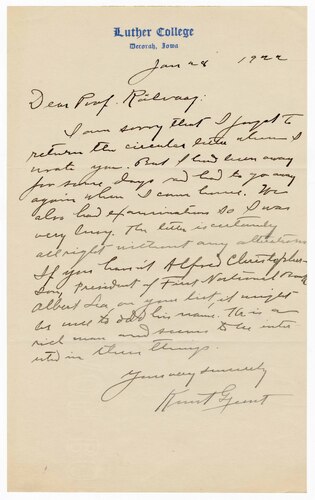 Luther College
Decorah, Iowa
Jan 28 1922
Dear Prof. Rölvaag:
I am sorry that I forgot to
return the circular letter when I
wrote you. But I had been away
for some days and had to go away
again when I came home. We
also had examinations so I was
very busy. The letter is certainly
all right without any alterations.
If you haven't Alfred Christopher-
son, President of First National Bank
Albert Lea, on your list, it might
be well to add his name. He is a
rich man and seems to be inter
ested in these things.
Yours very sincerely
Knut Gjerset